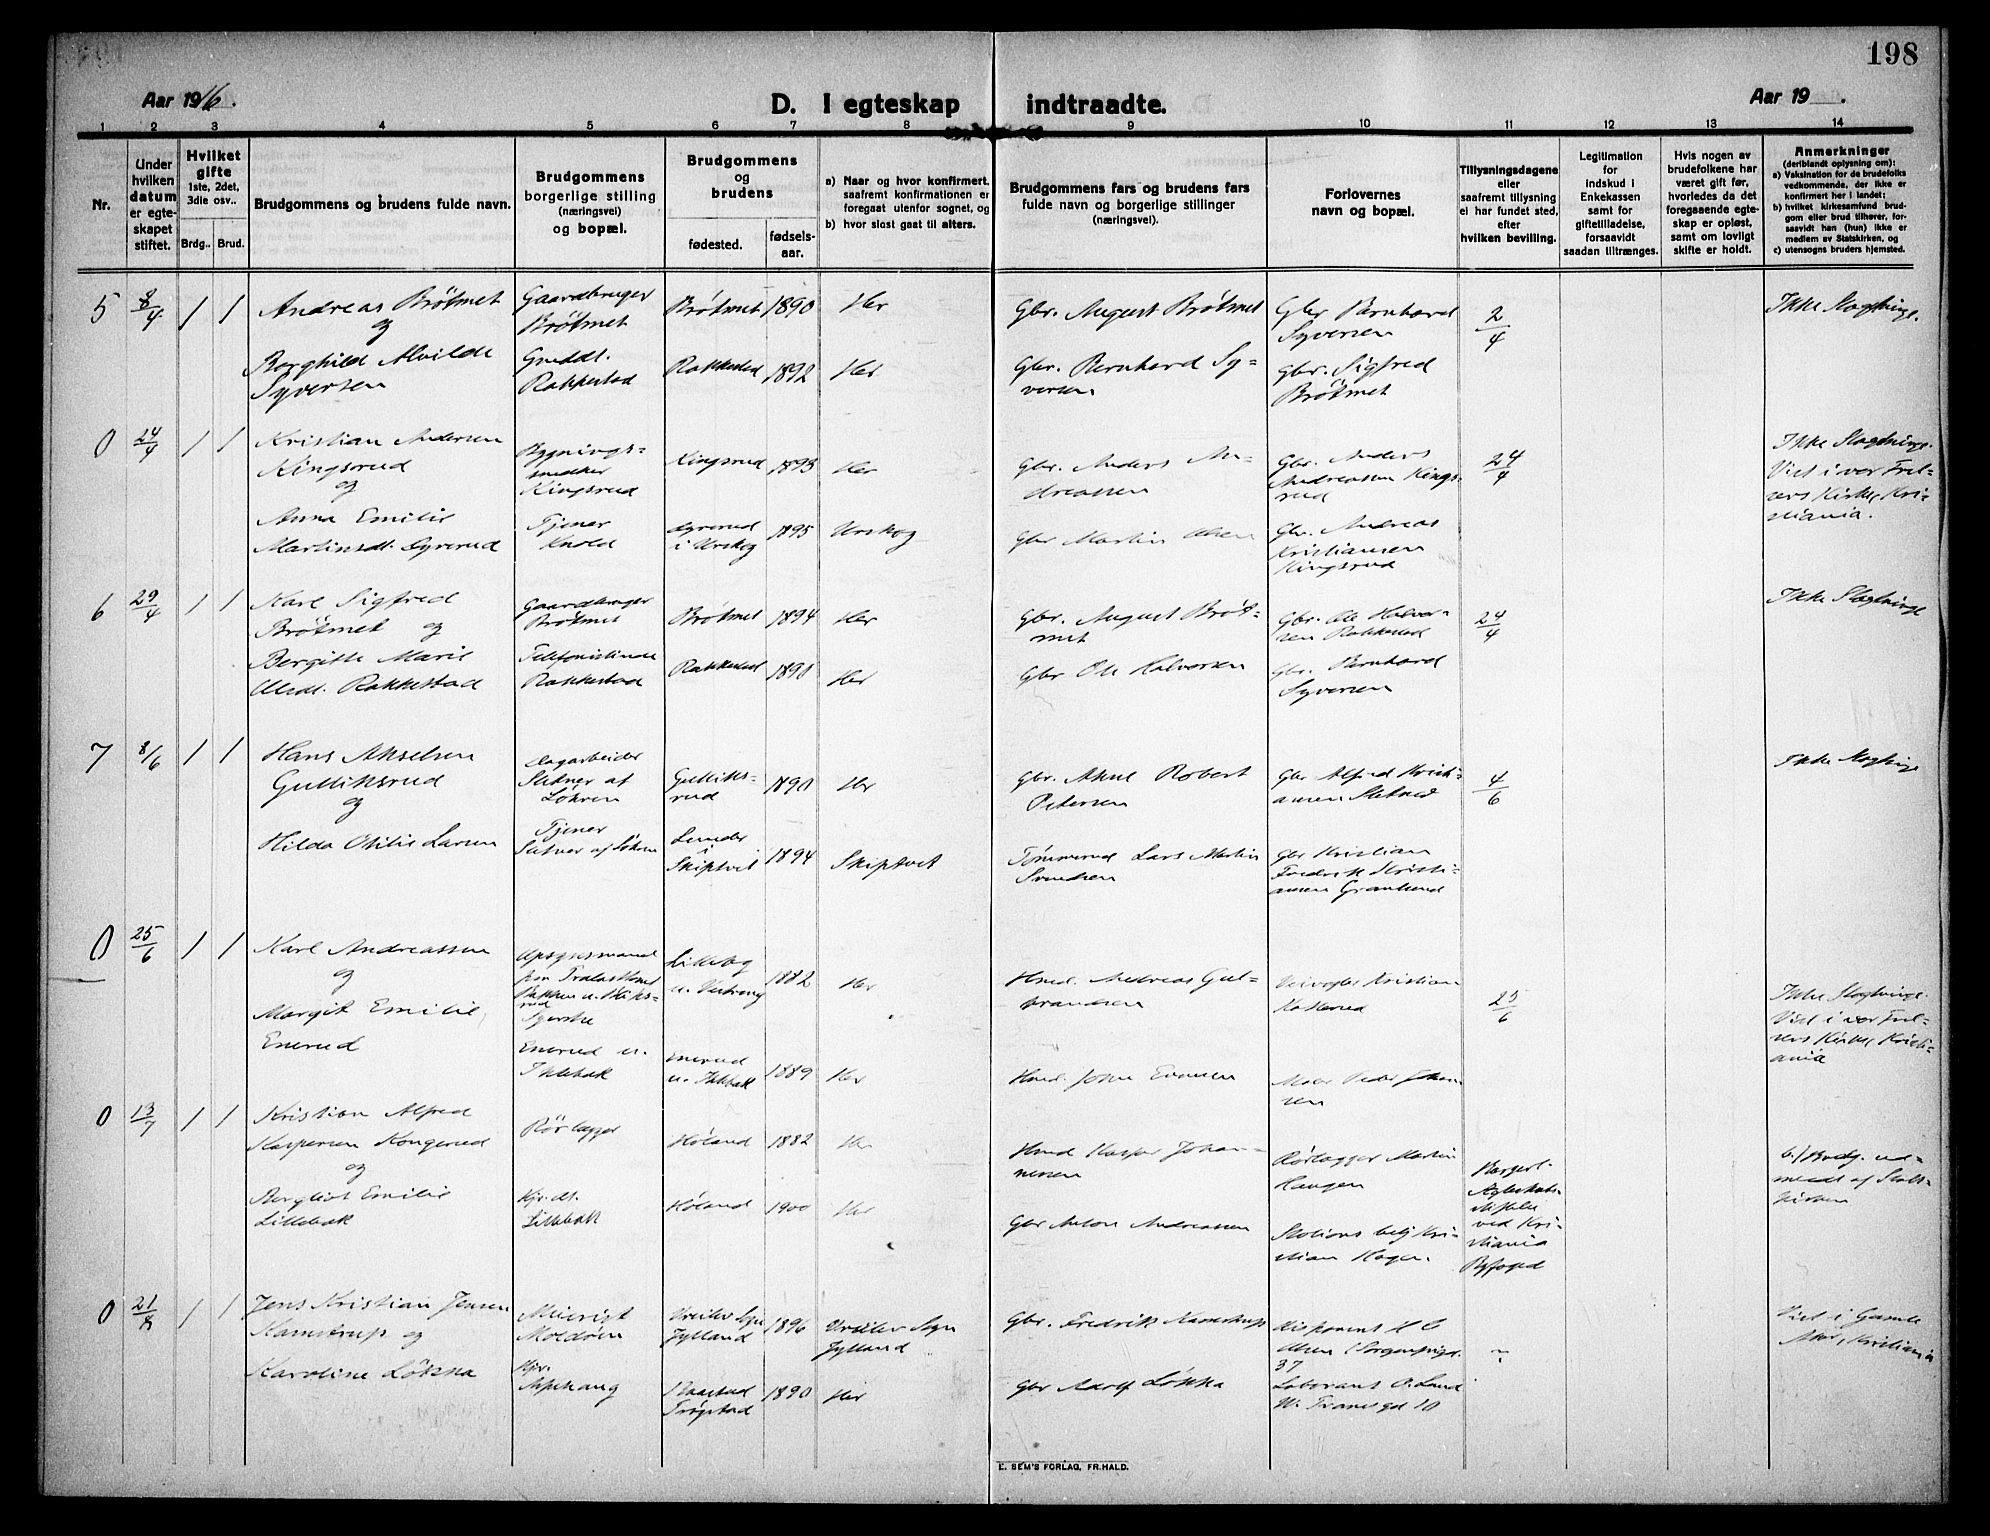 198
Aar 1916.
D. I egteskap indtraadte.
Aar 19 .
1 2 3 4 5 6 7 8 9 10 11 12 13 14
Nr.
Under
hvilken
datum
er egte-
skapet
stiftet.
Hvilket
gifte
1ste, 2det,
3die osv..
Brdg..
Brud.
Brudgommens og brudens fulde navn.
Brudgommens
borgerlige stilling
(næringsvei)
og bopæl.
Brudgommens
og
brudens
fødested.
fødsels-
aar.
a) Naar og hvor konfirmert,
saafremt konfirmationen er
foregaat utenfor sognet, og
b) hvor sidst gaat til alters.
Brudgommens fars og brudens fars
fulde navn og borgerlige stillinger
(næringsvei).
Forlovernes
navn og bopæl.
Tillysningsdagene
eller
saafremt tillysning
ei har fundet sted,
efter
hvilken bevilling.
Legitimation
for
Indskud i
Enkekassen
samt for
giftetilladelse,
forsaavidt
saadan tiltrænges.
Hvis nogen av
brudefolkene har
været gift før,
hvorledes da det
foregaaende egte-
skap er opløst,
samt om lovligt
skifte er holdt.
Anmerkninger
(deriblandt oplysning om):
a) Vaksination for de brudefolks
vedkommende, der ikke er
konfirmert her i landet;
b) hvilket kirkesamfund brud-
gom eller brud tilhører, for-
saavidt han (hun) ikke er
medlem av Statskirken, og
c) utensogns bruders hjemsted.
5 8/4 1 1
Andreas Brötmet
og
Borghild Alvilde
Syversen
Gaardbruger
Brötmet
Rakkestad
Brötmet 1890 Her
Rakkestad 1892 Her
Gbr. August Brötmet
Gbr. Bernhard Sy-
versen
Gbr Bernhard
Syversen
Gbr. Sigfred
Brötmet
2/4
Ikke Slegtninge.
0 24/4 1 1
Kristian Andersen
Kingsrud
og
Anna Emilie
Martinsdt. Dyrerud
Bygnings-
snedker
Kingsrud
Tjener
Kingsrud 1893 Her
Dyrerud
i Urskog 1895 Urskog
Gbr. Anders An-
dreassen
Gbr Martin Olsen
Gbr. Anders
Andreassen Kings-
rud
Gbr. Andreas
Kristiansen
Kingsrud
24/4
Ikke Slegtninge.
Viet i vor Frel-
sers Kirke, Kri-
stiania.
6 29/4 1 1
Karl Sigfred
Brötmet og
Bergitte Marie
Olsdt. Rakkestad
Gaardbruger
Brötmet
Telefonistinde
Rakkestad
Brötmet 1894 Her
Rakkestad Her
Gbr. August Bröt-
met
Gbr Ole Halvorsen
Gbr. Ole Halvor-
sen Rakkestad
Gbr. Bernhard
Syversen
24/4
Ikke Slegtninge
7 8/6 1 1
Hans Akselsen
Gulliksrud
og
Hilda Otilie Larsen
Dagarbeider
Sletner af
Løkren
Tjener
Gulliks-
rud 1890 Her
Lunder
i
Skiptvet 1894 Skiptvet
Gbr. Aksel Robert
Petersen
Lars Martin
Svendsen
Gbr Alfred Kristi-
ansen
Gbr Kristian
Fredrik Kristi-
ansen
4/6
Ikke Slegtninge
0 25/6 1 1
Karl Andreassen
og
Margit Emilie
Enerud
Opsynsmand
Syerske
Enerud u.
Ihlebæk
1882 Her
Enerud
u. Ihlebæk 1889 Her
Andreas Gul-
brandsen
John Evensen
Kristian
25/6
Ikke Slegtninge.
Viet i vor Frel-
sers Kirke, Kristi-
ania
0 13/7 1 1
Kristian Alfred
Kaspersen Kongerud
og
Bergliot Emilie
Lillebæk
Rörlægger
Lillebæk
Høland 1882 Her
Høland 1900 Her
Kasper Johan-
nessen
Gbr Anton Andreassen
Rørlægger Martin
Haugen
Stations betj Kri-
stian Hagen.
Borgerl.
ved Kri-
stiania
Byfoged
b) Brudg. ud-
meldt af Stats-
kirken
0 21/8 1 1
Jens Kristian Jensen
Kamstrup og
Karoline Løkka
Meierist
Sogn
Jylland 1896 Sogn
Jylland
Trøgstad 1890 Her
Gbr. Fredrik Kamstrup
Gbr Adolf Løkka
disponent H C
Olsen
37
Laborant O. Lund
10
Viet i Gamle
Aker, Kristiania
E. SEM'S FORLAG, FR.HALD.